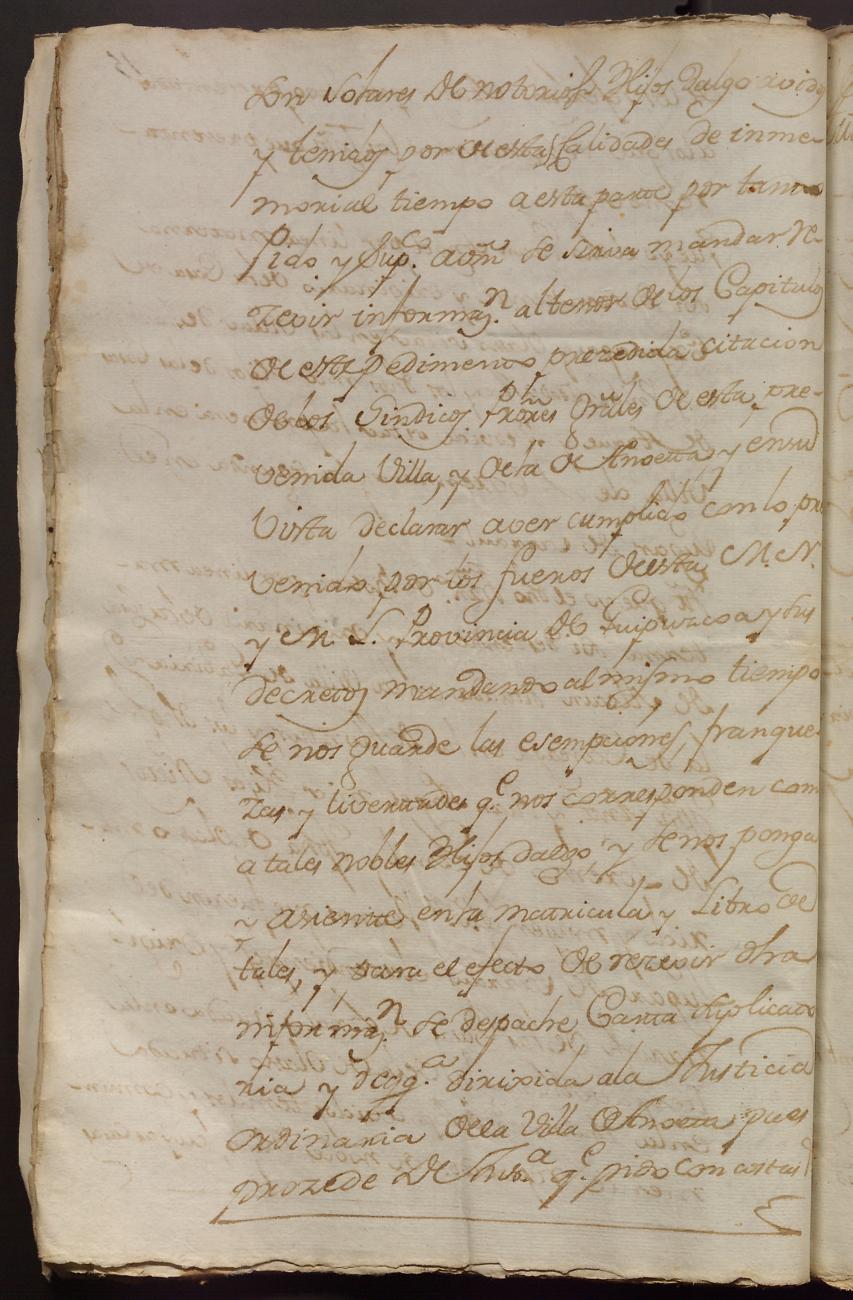 son solares de notorios Hijos dalgo avidos
y tenidos por de estas Calidades de inme-
morial tiempo a esta parte por tanto
Pido y sup.co a vm se sirva mandar re-
zevir informaz.n al tenor de los Capitulos
de este pedimento prezedida citacion
de los Sindicos Pro.res Grâles de esta pre-
venida Villa, y de la de Anoeta y en su
Vista declarar aver cumplido con lo pre
venido por los fueros de esta M. N.
y M. L. Provincia de Guipuzcoa y sus
decretos mandando al mismo tiempo
se nos guarde las esempciones, franque-
zas y livertades q.e nos corresponden com
a tales nobles Hijos dalgo, y se nos ponga
asiento en la matricula y Libro de
tales, y para el efecto de rezevir dha
informaz.n se despache Carta suplicato
ria y de qq.a dirixida a la Justicia
ordinaria de la Villa de Anoeta pues
prozede de Just.a q.e pido con costas